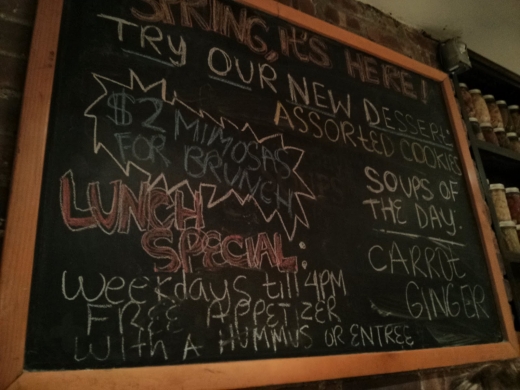 SPRING, IT'S HERE!
TRY OUR NEW DESSERTS
ASSORTED COOKIES
$2 MIMOSAS
FOR BRUNCH
LUNCH
SPECIAL:
Weekdays till 4PM
FREE APPETIZER
WITH A HUMMUS OR ENTREE
SOUPS OF
THE DAY.
CARROT
GINGER